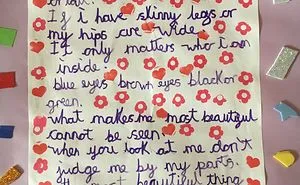 or tall.
If i have skinny legs or
my hips are wide
It only matters who i am
inside.
blue eyes brown eyes black or
green.
what makes me most beautiful
cannot be seen.
when you look at me don't
judge me by my parts.
most beautiful thing